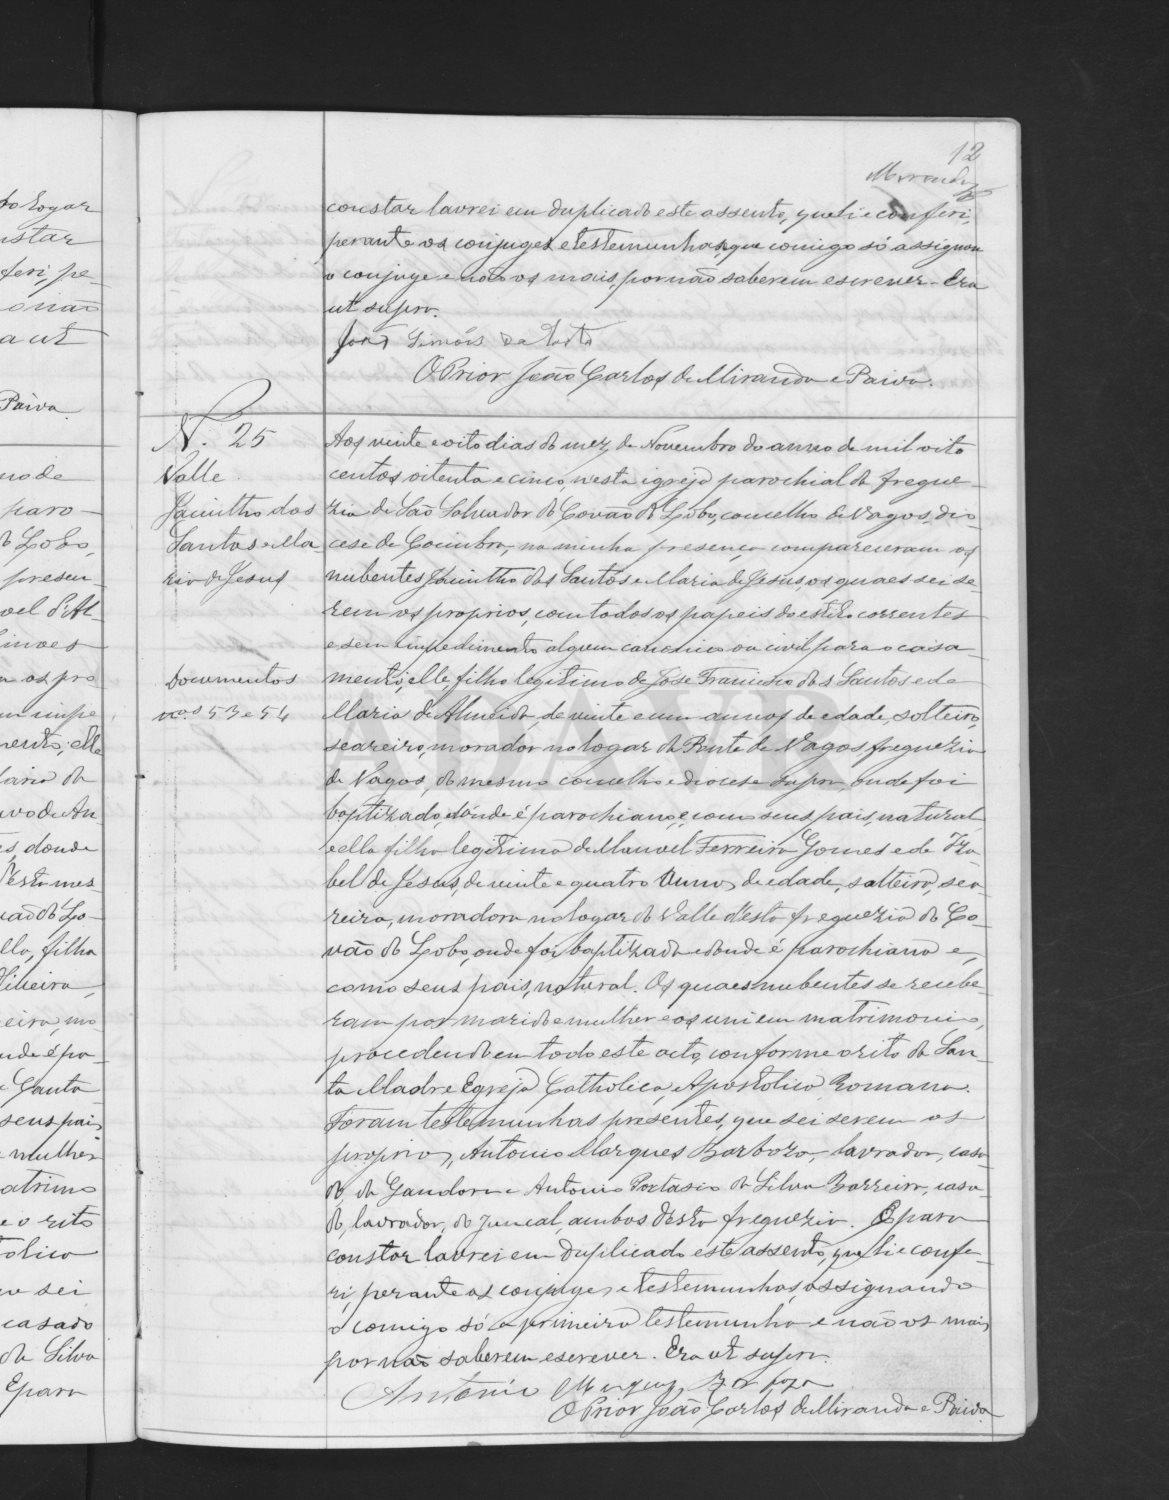 12
Miranda
constar lavrei em duplicado este assento, que li e conferi,
perante os conjuges e testemunhas, que comigo só assignou
o conjuge e não os mais, por não saberem escrever. Era
ut supra.
João Simões da Costa
O Prior João Carlos de Miranda e Paiva.
N. 25
Valle
Jacintho dos
Santos e Ma
ria de Jesus
Documentos
nos 53 e 54
Aos vinte e oito dias do mez de Novembro do anno de mil oito
centos oitenta e cinco n'esta igreja parochial da fregue-
zia de São Salvador do Covão do Lobo, concelho de Vagos, dio-
cese de Coimbra, na minha presença compareceram os
nubentes Jacintho dos Santos e Maria de Jesus, os quaes sei se-
rem os proprios, com todos os papeis do estilo correntes
e sem impedimento algum canonico ou civil para o casa
mento; elle, filho legitimo de José Francisco dos Santos e de
Maria de Almeida, de vinte e um annos de edade, solteiro,
seareiro, morador no logar da Ponte de Vagos, freguezia
de Vagos, do mesmo concelho e diocese supra, onde foi
baptizado, d'onde é parochiano, e, como seus pais, natural,
e ella filha legitima de Manoel Ferreira Gomes e de Iza
bel de Jesus, de vinte e quatro annos de edade, solteira, sea-
reira, moradora no logar do Valle d'esta freguezia do Co-
vão do Lobo, onde foi baptizada e donde é parochiana e,
como seus pais, natural. Os quaes nubentes se recebe-
ram por marido e mulher e os uni em matrimonio,
procedendo em todo este acto, conforme o rito da San-
ta Madre Egreja Catholica, Apostolica Romana.
Foram testemunhas presentes, que sei serem os
proprios, Antonio Marques Barboza, lavrador, casa-
do, da Gandara e Antonio da Silva Barreira, casa
do, lavrador, do Juncal, ambos d'esta freguezia. E para
constar lavrei em duplicado este assento, que li e confe-
ri, perante os conjuges e testemunhas, assignando
o comigo só a primeira testemunha e não os mais
por não saberem escrever. Era ut supra.
António Marques Barboza
O Prior João Carlos de Miranda e Paiva.
do logar
nstar
feri, pe-
o não
a ut
Paiva.
no de
paro-
do Lobo,
presen-
imoes
os pro
impe
mento; elle
d'onde
esta mes
vão do Lo-
ella, filha
eira, mo-
nde é pa-
seus pais
mulher
atrimo
e o rito
tolica
sei
casado
da Silva
E para